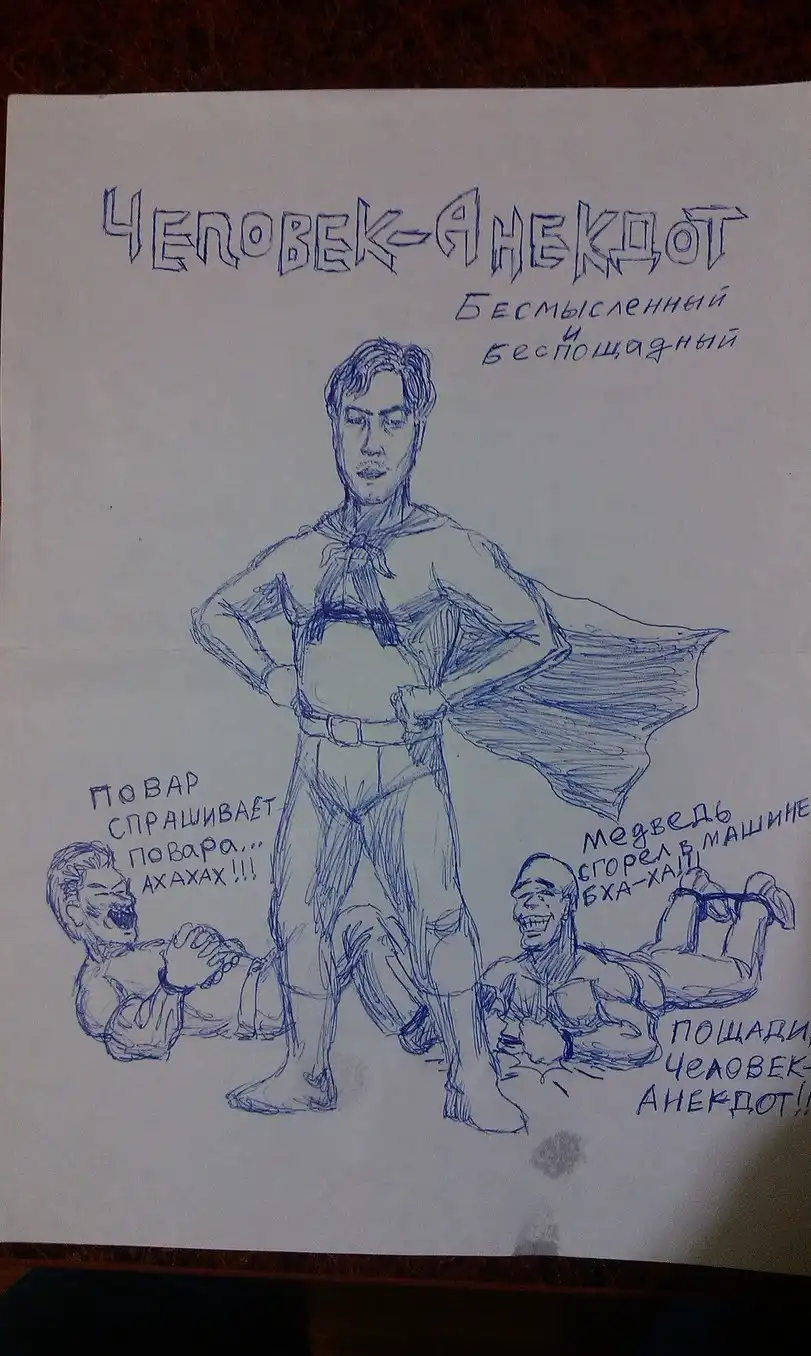 Человек-Анекдот
Бесмысленный
и
беспощадный
ПОВАР
СПРАШИВАЕТ
Повара...
АХАХАХ!!!
Медведь
сгорел в МАШИНЕ
БХА-ХА!!!
ПОЩАДИ,
ЧЕЛОВЕК-
АНЕКДОТ!!